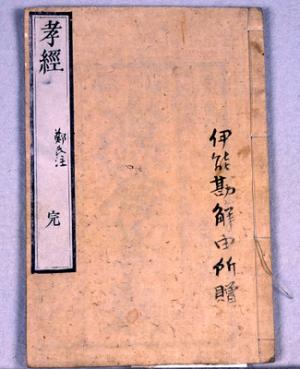 伊能勘解由所贈
孝經
鄭氏注
完